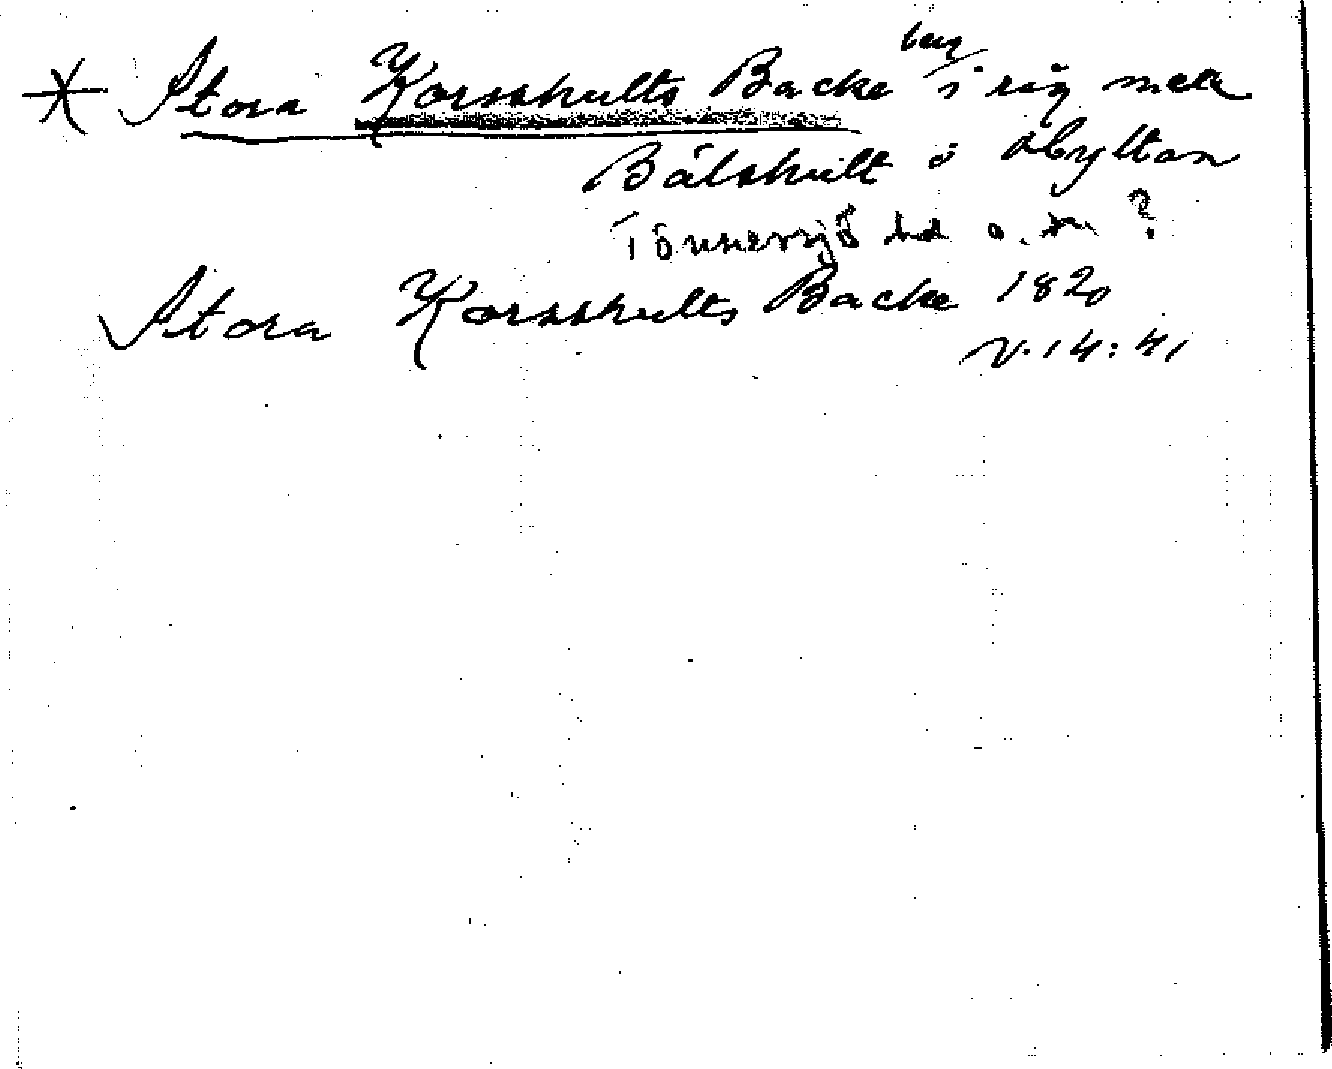 * Stora Korsshults Backe berg i råg med
Bålshult o Skyltan
Tönnersjö hd o. sn ?
Stora Korsshults Backe 1820
V. 14: 41